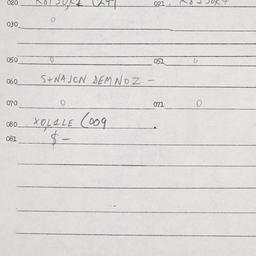 020 021
030 0
050 0 051 0
060 S+NAJON DEMNOZ -
070 0 071 0
080 XOLELE (009
081 $ -